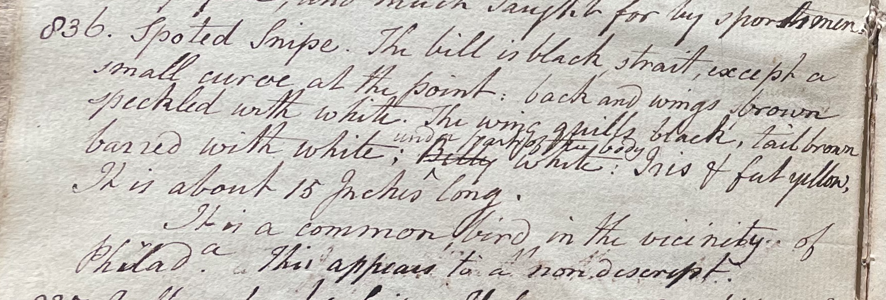 , and much saught for by sportsmen.
836. Spoted Snipe. The bill is black strait, except a
small curve at the point: back and wings brown
speckled with white. The wing quills black, tail brown
barred with white; under part of the body white: Iris & feet yellow,
It is about 15 Inches long.
It is a common bird in the vicinity of
Philada. This appears to a nondescript.